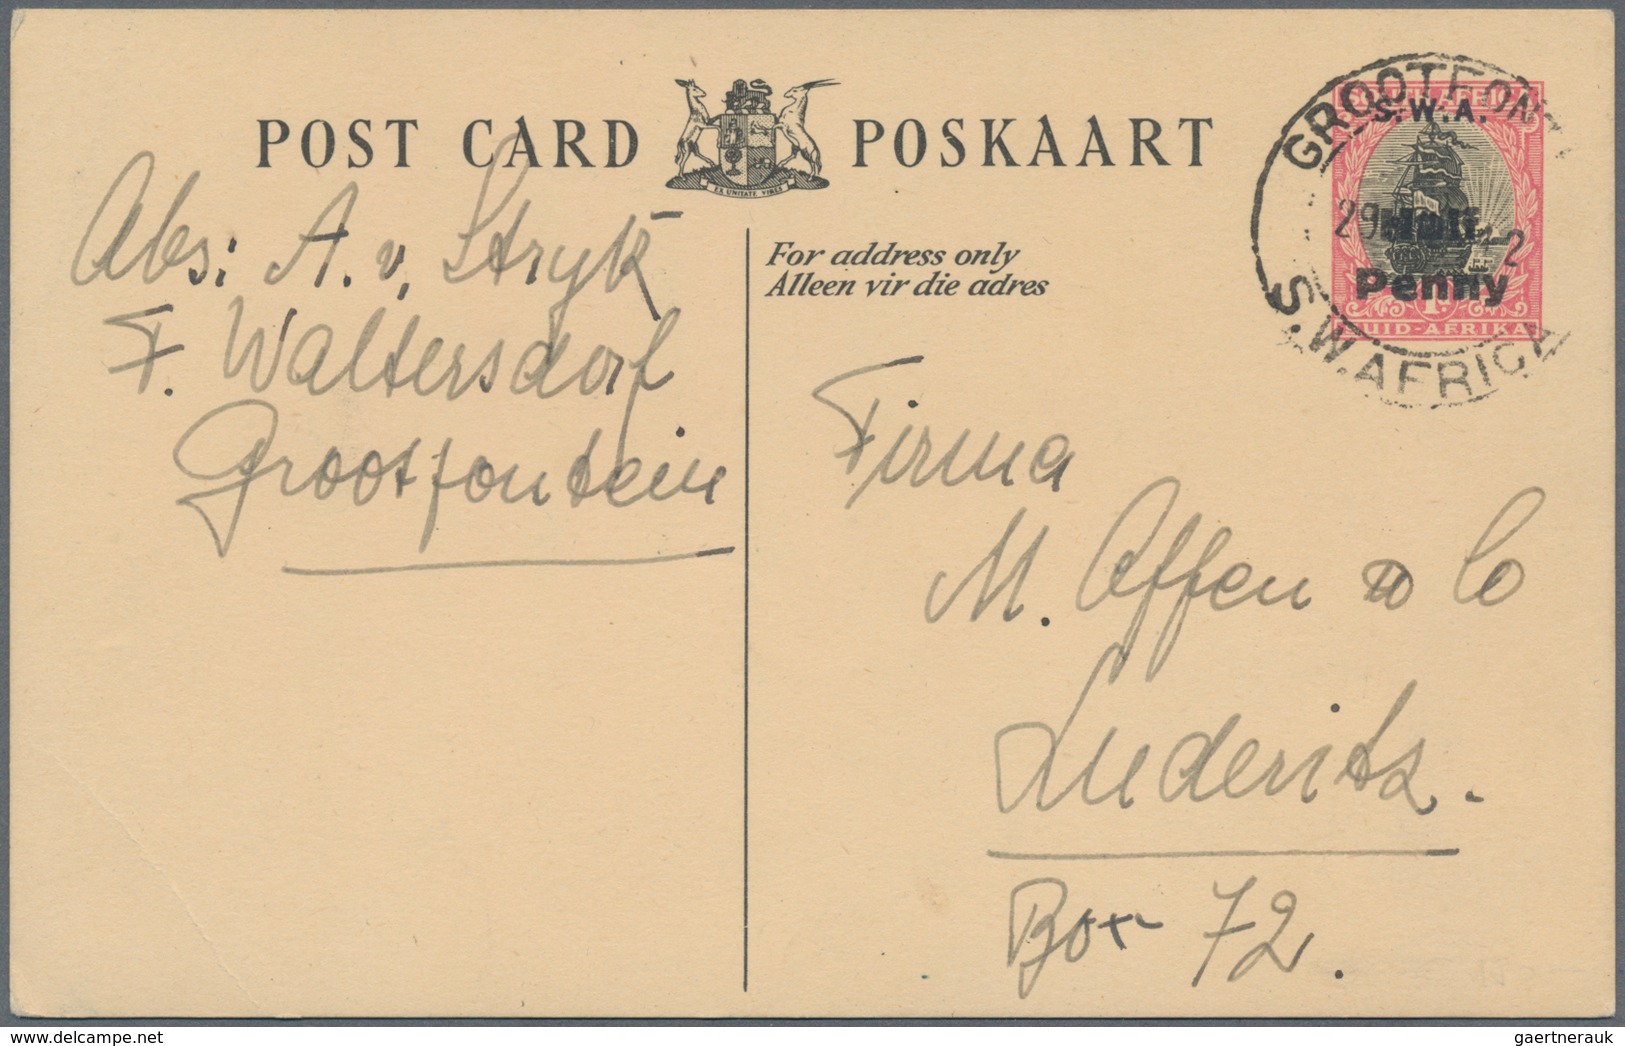 POST CARD POSKAART
EX UNITATE VIRES
For address only
Alleen vir die adres
S.W.A.
Half
Penny
1D.
SUID-AFRIKA
GROOTFONT
29
S.W.AFRICA
Abs: A. v. Stryk
F. Waltersdorf
Grootfontein
Firma
M. Offen & Co
Luderitz.
Box 72.
delcampe.net
gaertnerauk